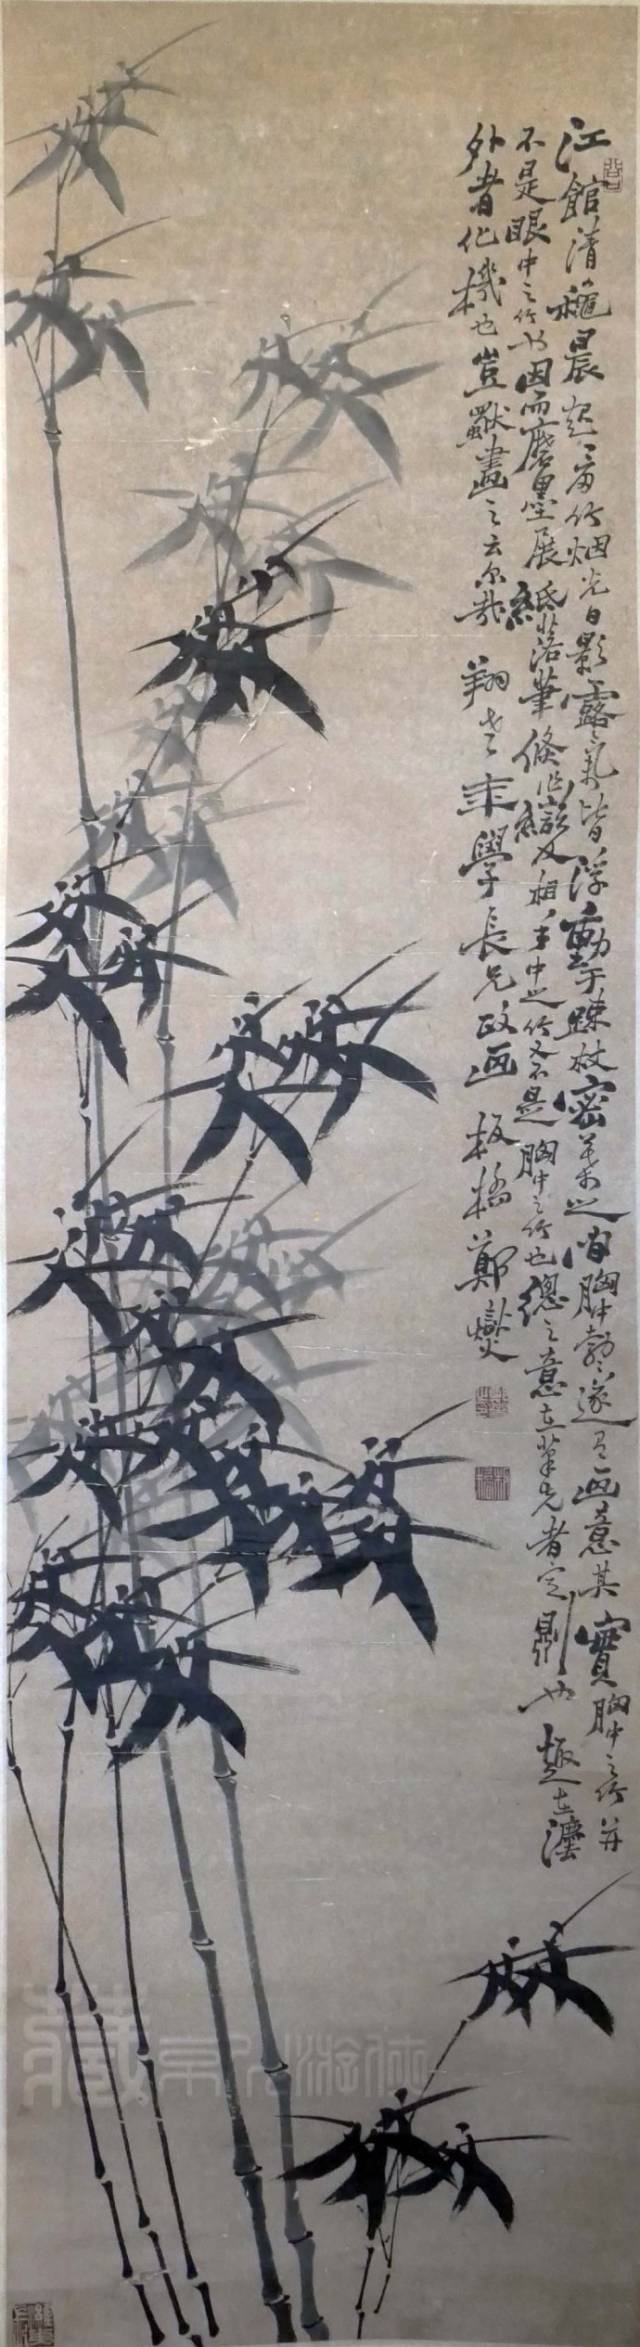 江館清龝晨起看竹烟光日影露氣皆浮動于疎枝密葉之間胸中勃勃遂有画意其實胸中之竹并
不是眼中之竹也因而磨墨展紙落筆倏作變相手中之竹又不是胸中之竹也總之意在筆先者定則也趣在灋
外者化機也豈獨畫之云尔哉 翔老年學長兄政画 板橋鄭燮